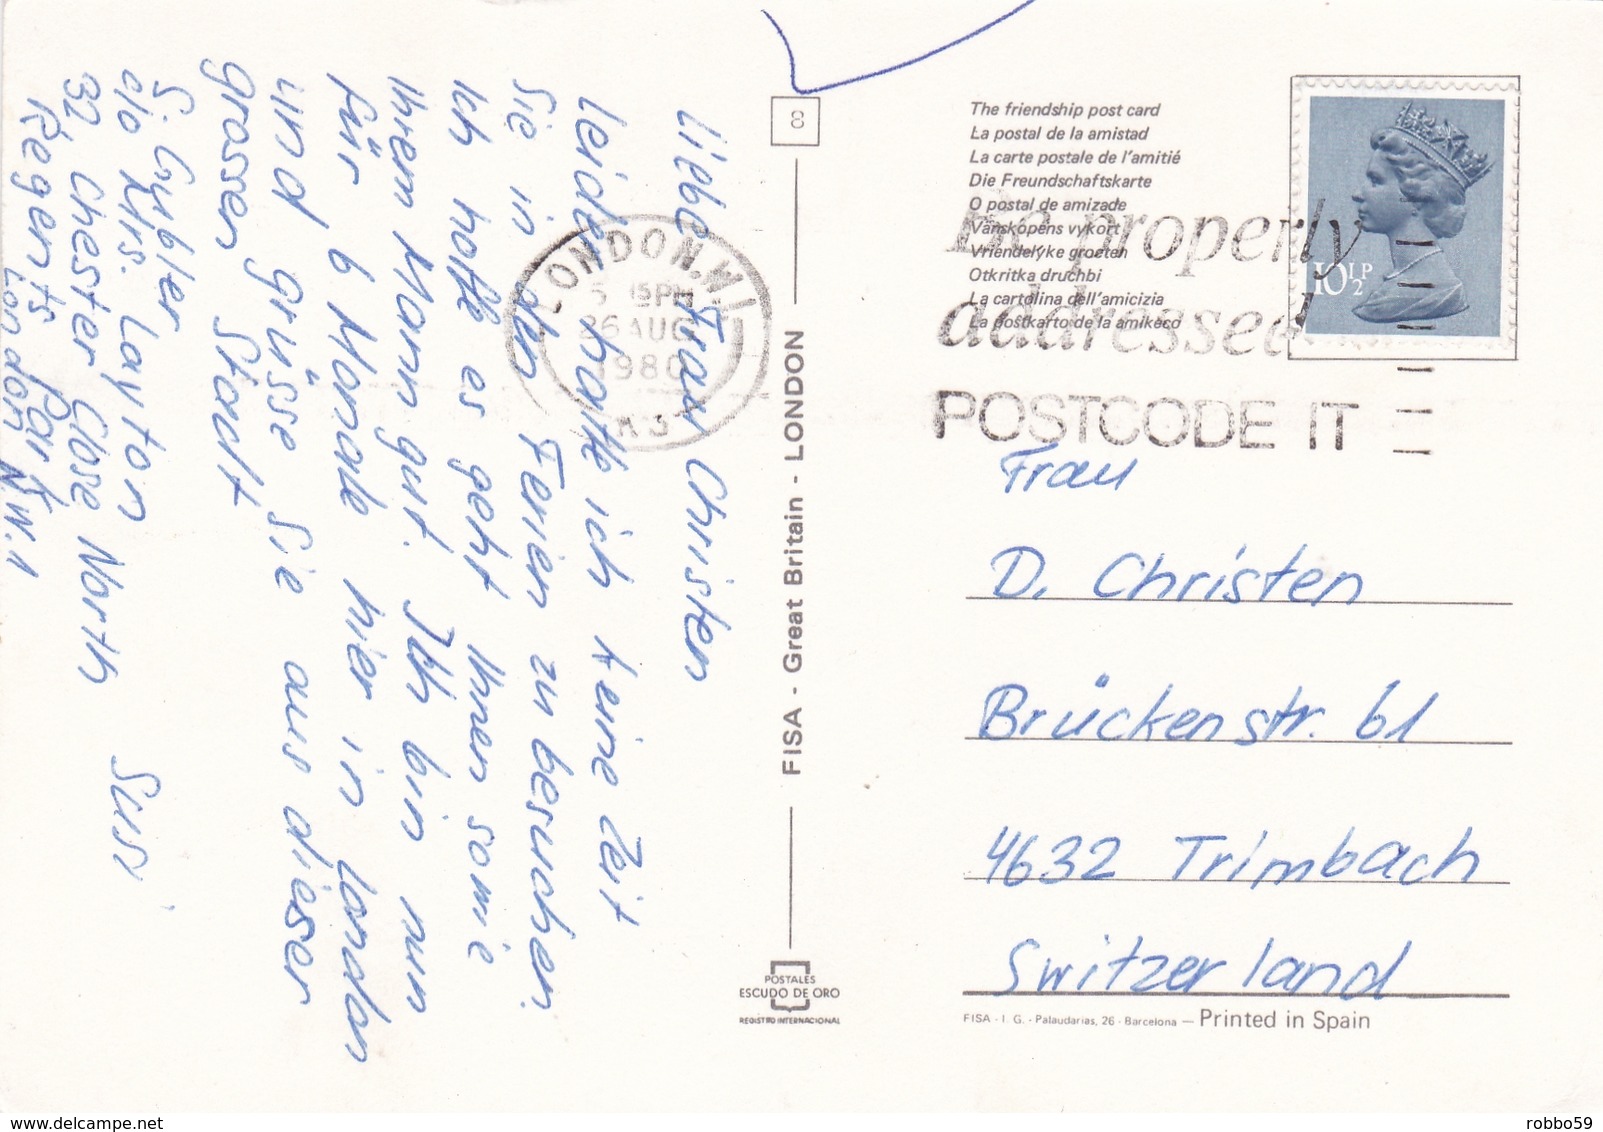 Liebe Frau Christen
Leider hatte ich keine Zeit
Sie in den Ferien zu besuchen.
Ich hoffe es geht Ihnen sowie
Ihrem Mann gut. Ich bin nun
für 6 Monate hier in London
und grüsse Sie aus dieser
grossen Stadt
Susi
c/o Mrs. Layton
32, Chester Close North
Regents Park
London N.W.1
8
FISA - Great Britain - LONDON
POSTALES
ESCUDO DE ORO
REGISTRO INTERNACIONAL
LONDON.W1
15PM
26 AUG
1980
The friendship post card
La postal de la amistad
La carte postale de l'amitié
Die Freundschaftskarte
O postal de amizade
Vänskapens vykort
Vriendelyke groeten
Otkritka druchbi
La cartolina dell'amicizia
La postkarto de la amikeco
Be properly
addressed
POSTCODE IT
10½P
Frau
D. Christen
Brückenstr. 61
4632 Trimbach
Switzerland
FISA - I. G. - Palaudarias, 26 - Barcelona — Printed in Spain
www.delcampe.net
robbo59